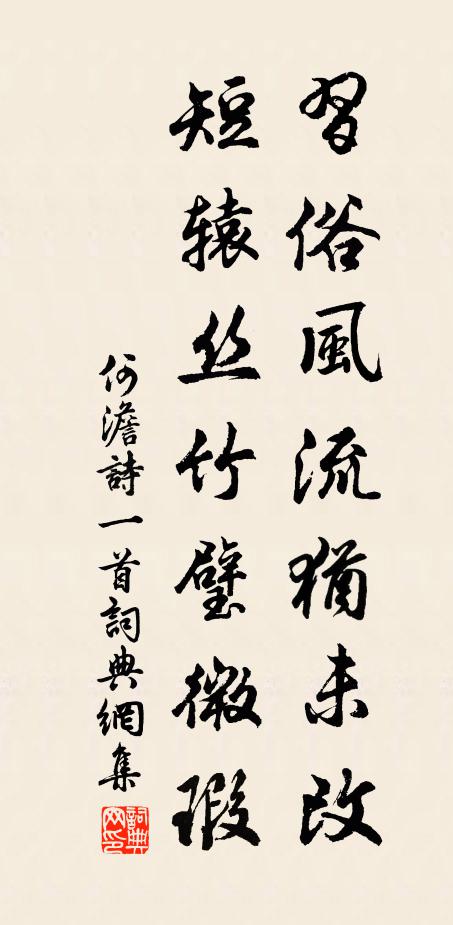 習俗風流猶未改
短辕丝竹璧微瑕
何澹詩一首詞典網集
詞典网印